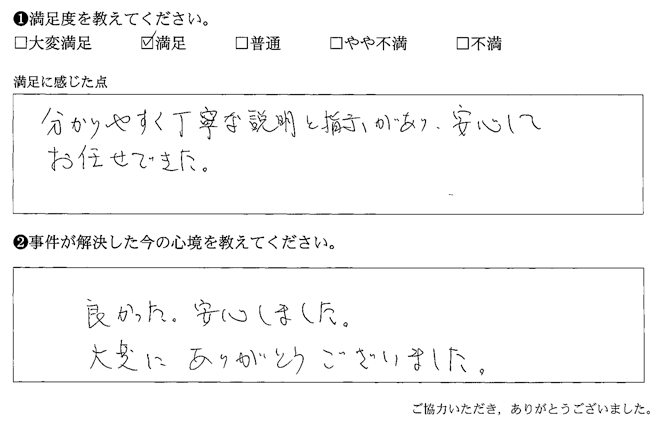 ❶満足度を教えてください。
□大変満足 ☑満足 □普通 □やや不満 □不満
満足に感じた点
分かりやすく丁寧な説明と指示があり、安心して
お任せできた。
❷事件が解決した今の心境を教えてください。
良かった。安心しました。
大変に ありがとうございました。
ご協力いただき，ありがとうございました。